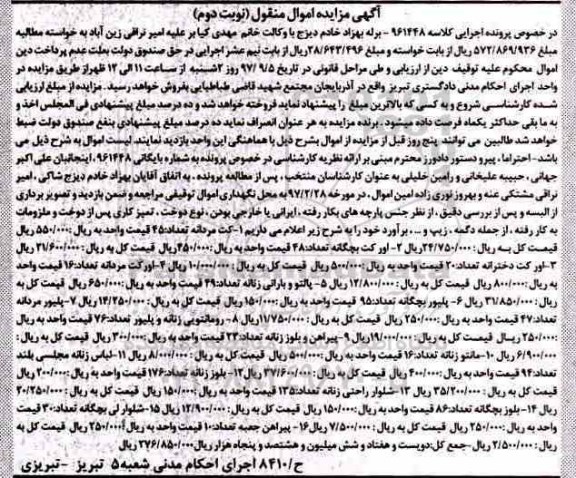 آگهی مزایده اموال منقول (نوبت دوم)
در خصوص پرونده اجرایی کلاسه ۹۶۱۴۴۸ - برله بهزاد خادم دیزج با وکالت خانم مهدی کیا بر علیه امیر نراقی زین آباد به خواسته مطالبه
مبلغ ۵۷۲/۸۶۹/۹۳۶ ریال از بابت خواسته و مبلغ ۲۸/۶۴۳/۴۹۶ ریال از بابت نیم عشر اجرایی در حق صندوق دولت بعلت عدم پرداخت دین
اموال محکوم علیه توقیف دین از ارزیابی و طی مراحل قانونی در تاریخ ۹۷/۰۹/۵ روز ۲شنبه از ساعت ۱۱ الی ۱۲ ظهر از طریق مزایده در
واحد اجرای احکام مدنی دادگستری تبریز واقع در آذربایجان مجتمع شهید قاضی طباطبایی بفروش خواهد رسید. مزایده از مبلغ ارزیابی
شده کارشناسی شروع و به کسی که بالاترین مبلغ را پیشنهاد نماید فروخته خواهد شد و ده درصد مبلغ پیشنهادی فی المجلس اخذ و
به ما بقی حداکثر یکماه فرصت داده میشود. برنده مزایده به هر عنوان انصراف نماید ده درصد مبلغ پیشنهادی بنفع صندوق دولت ضبط
خواهد شد طالبین می توانند پنج روز قبل از مزایده از اموال بشرح ذیل با هماهنگی این واحد بازدید نمایند. لیست اموال به شرح ذیل می
باشد- احتراما، پیرو دستور دادورز محترم مبنی بر ارائه نظریه کارشناسی در خصوص پرونده به شماره بایگانی ۹۶۱۴۴۸، اینجانبان علی اکبر
جهانی، حبیبه علیخانی و رامین خلیلی به عنوان کارشناسان منتخب، پس از مطالعه پرونده، به اتفاق آقایان بهزاد خادم دیزج شاکی، امیر
نراقی مشتکی عنه و بهروز نوری زاده امین اموال، در مورخه ۹۷/۲/۲۸ به محل نگهداری اموال توقیفی مراجعه و ضمن بازدید و تصویر برداری
از البسه و پس از بررسی دقیق، از نظر جنس پارچه های بکار رفته، ایرانی یا خارجی بودن، نوع دوخت، تمیز کاری پس از دوخت و ملزومات
به کار رفته، از جمله دگمه، زیپ و ...، برآورد خود را به شرح زیر اعلام می داریم ۱-کت مردانه تعداد:۴۵ قیمت واحد به ریال:۵۵۰/۰۰۰ ریال
قیمت کل به ریال: ۲۴/۷۵۰/۰۰۰ ریال ۲- اور کت بچگانه تعداد:۴۸ قیمت واحد به ریال:۴۵۰/۰۰۰ ریال قیمت کل به ریال: ۲۱/۶۰۰/۰۰۰ ریال
۳-اور کت دخترانه تعداد:۲۰ قیمت واحد به ریال:۵۰۰/۰۰۰ ریال قیمت کل به ریال: ۱۰/۰۰۰/۰۰۰ ریال ۴-اور کت مردانه تعداد:۱۶ قیمت واحد
به ریال:۸۰۰/۰۰۰ ریال قیمت کل به ریال: ۱۲/۸۰۰/۰۰۰ ریال ۵- پالتو و بارانی زنانه تعداد:۴۹ قیمت واحد به ریال:۶۵۰/۰۰۰ ریال قیمت کل
به ریال: ۳۱/۸۵۰/۰۰۰ ریال ۶- پلیور بچگانه تعداد:۹۵ قیمت واحد به ریال:۱۵۰/۰۰۰ ریال قیمت کل به ریال: ۱۴/۲۵۰/۰۰۰ ریال ۷-پلیور مردانه
تعداد:۴۷ قیمت واحد به ریال:۲۵۰/۰۰۰ ریال قیمت کل به ریال: ۱۱/۷۵۰/۰۰۰ ریال ۸- رومانتویی زنانه و پلیور تعداد:۷۶ قیمت واحد به ریال:
۲۵۰/۰۰۰ ریال قیمت کل به ریال: ۱۹/۰۰۰/۰۰۰ ریال ۹-پیراهن و بلوز زنانه تعداد:۲۳ قیمت واحد به ریال:۳۰۰/۰۰۰ ریال قیمت کل به ریال:
۶/۹۰۰/۰۰۰ ریال ۱۰-مانتو زنانه تعداد:۱۶ قیمت واحد به ریال:۵۰۰/۰۰۰ ریال قیمت کل به ریال: ۸/۰۰۰/۰۰۰ ریال ۱۱-لباس زنانه مجلسی بلند
تعداد:۹۴ قیمت واحد به ریال:۴۰۰/۰۰۰ ریال قیمت کل به ریال: ۳۷/۶۰۰/۰۰۰ ریال ۱۲- بلوز زنانه تعداد:۱۷۶ قیمت واحد به ریال:۲۰۰/۰۰۰ ریال
قیمت کل به ریال: ۳۵/۲۰۰/۰۰۰ ریال ۱۳-شلوار راحتی زنانه تعداد:۱۳۵ قیمت واحد به ریال:۱۵۰/۰۰۰ ریال قیمت کل به ریال: ۲۰/۲۵۰/۰۰۰
ریال ۱۴-بلوز بچگانه تعداد:۸۶ قیمت واحد به ریال:۱۵۰/۰۰۰ ریال قیمت کل به ریال: ۱۲/۹۰۰/۰۰۰ ریال ۱۵-شلوار لی بچگانه تعداد:۳۰ قیمت
واحد به ریال:۲۵۰/۰۰۰ ریال قیمت کل به ریال: ۷/۵۰۰/۰۰۰ ریال ۱۶- پیراهن جعبه تعداد:۱۰ قیمت واحد به ریال:۲۵۰/۰۰۰ ریال قیمت کل به
ریال: ۲/۵۰۰/۰۰۰ ریال-جمع کل:دویست و هفتاد و شش میلیون و هشتصد و پنجاه هزار ریال ۲۷۶/۸۵۰/۰۰۰ ریال
ح/۸۴۱۰ اجرای احکام مدنی شعبه۵ تبریز -تبریزی